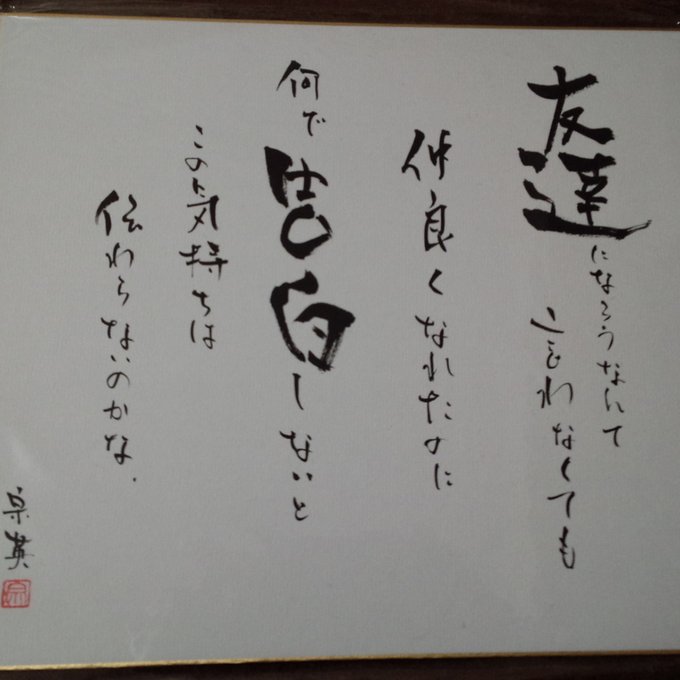 友達になろうなんて
言わなくても
仲良くなれたのに
何で告白しないと
この気持ちは
伝わらないのかな.